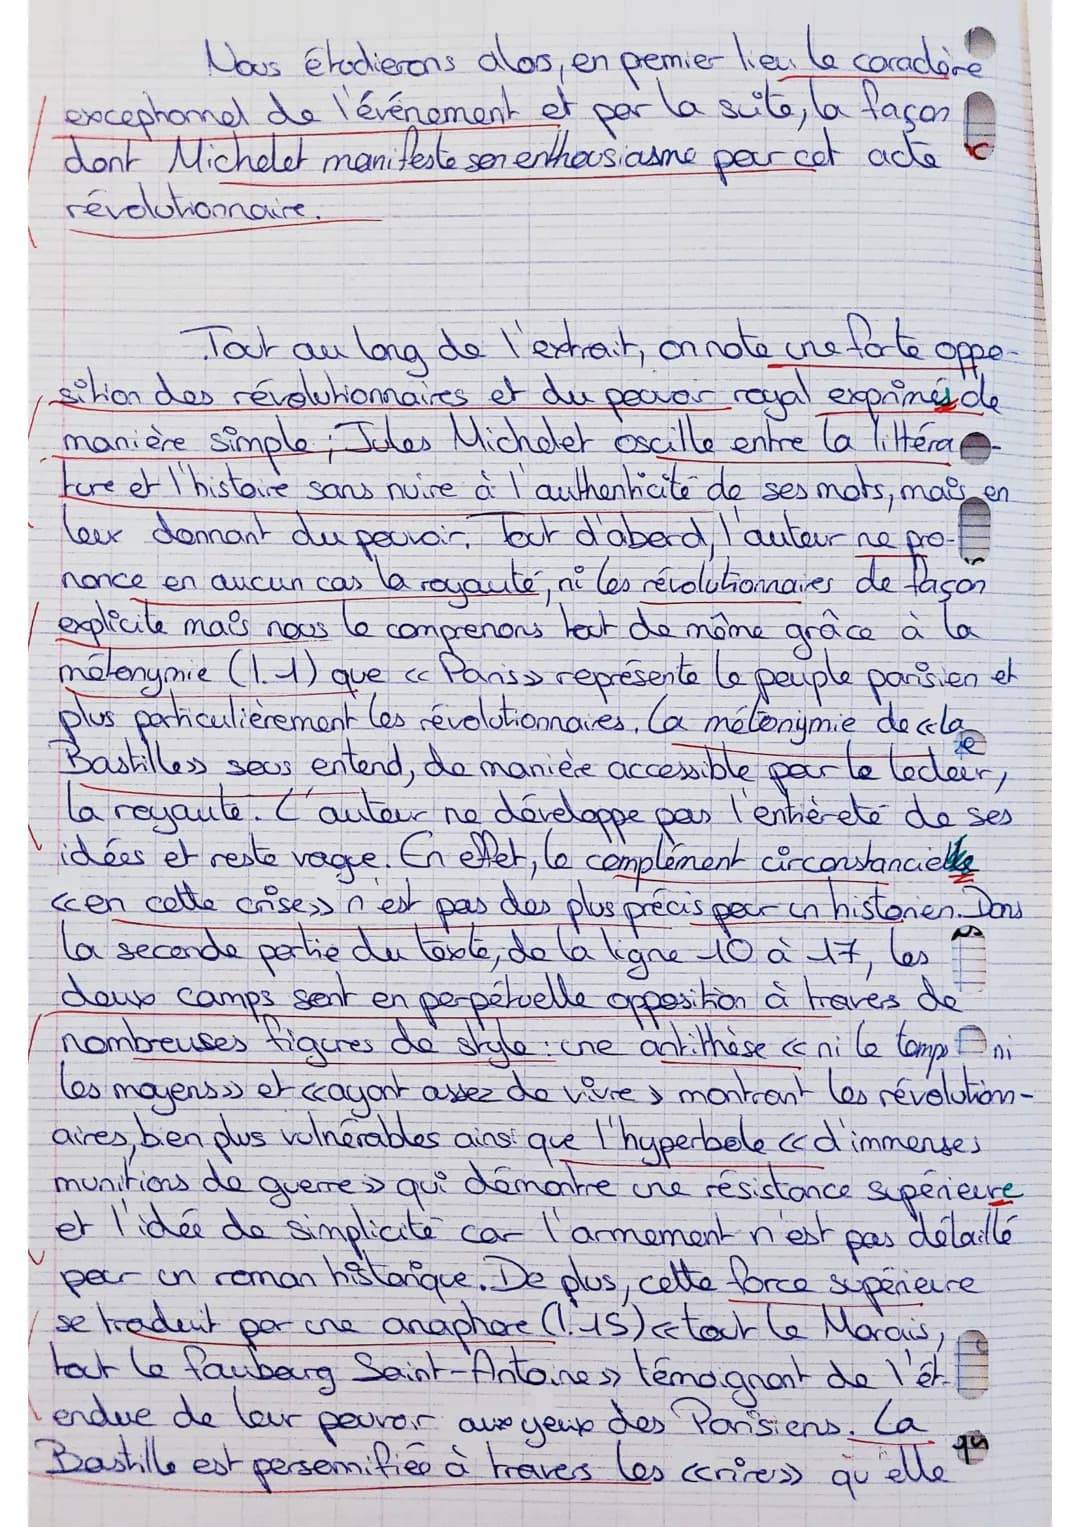 Nous étudierons alors, en premier lieu le caractère
exceptionnel de l'événement et par la suite, la façon
dont Michelet manifeste son enthousiasme pour cet acte
révolutionnaire.
Tout au long de l'extrait, on note une forte oppo-
sition des révolutionnaires et du pouvoir royal exprimés de
manière simple ; Jules Michelet oscille entre la littéra-
ture et l'histoire sans nuire à l'authenticité de ses mots, mais en
leur donnant du pouvoir. Tout d'abord, l'auteur ne pro-
nonce en aucun cas la royauté, ni les révolutionnaires de façon
explicite mais nous le comprenons tout de même grâce à la
métonymie (l.1) que « Paris » représente le peuple parisien et
plus particulièrement les révolutionnaires. La métonymie de « la
Bastille » sous entend, de manière accessible par le lecteur,
la royauté. L'auteur ne développe pas l'entièreté de ses
idées et reste vague. En effet, le complément circonstanciel
« en cette crise » n'est pas des plus précis pour un historien. Dans
la seconde partie du texte, de la ligne 10 à 17, les
deux camps sont en perpétuelle opposition à travers de
nombreuses figures de style : une antithèse « ni le temps ni
les moyens » et « ayant assez de vivre » montrant les révolution-
aires, bien plus vulnérables ainsi que l'hyperbole « d'immenses
munitions de guerre » qui démontre une résistance supérieure
et l'idée de simplicité car l'armement n'est pas détaillé
pour un roman historique. De plus, cette force supérieure
se traduit par une anaphore (l.15) « tout le Marais,
tout le faubourg Saint-Antoine » témoignant de l'ét-
endue de leur pouvoir aux yeux des Parisiens. La
Bastille est personnifiée à travers les « rires » qu'elle